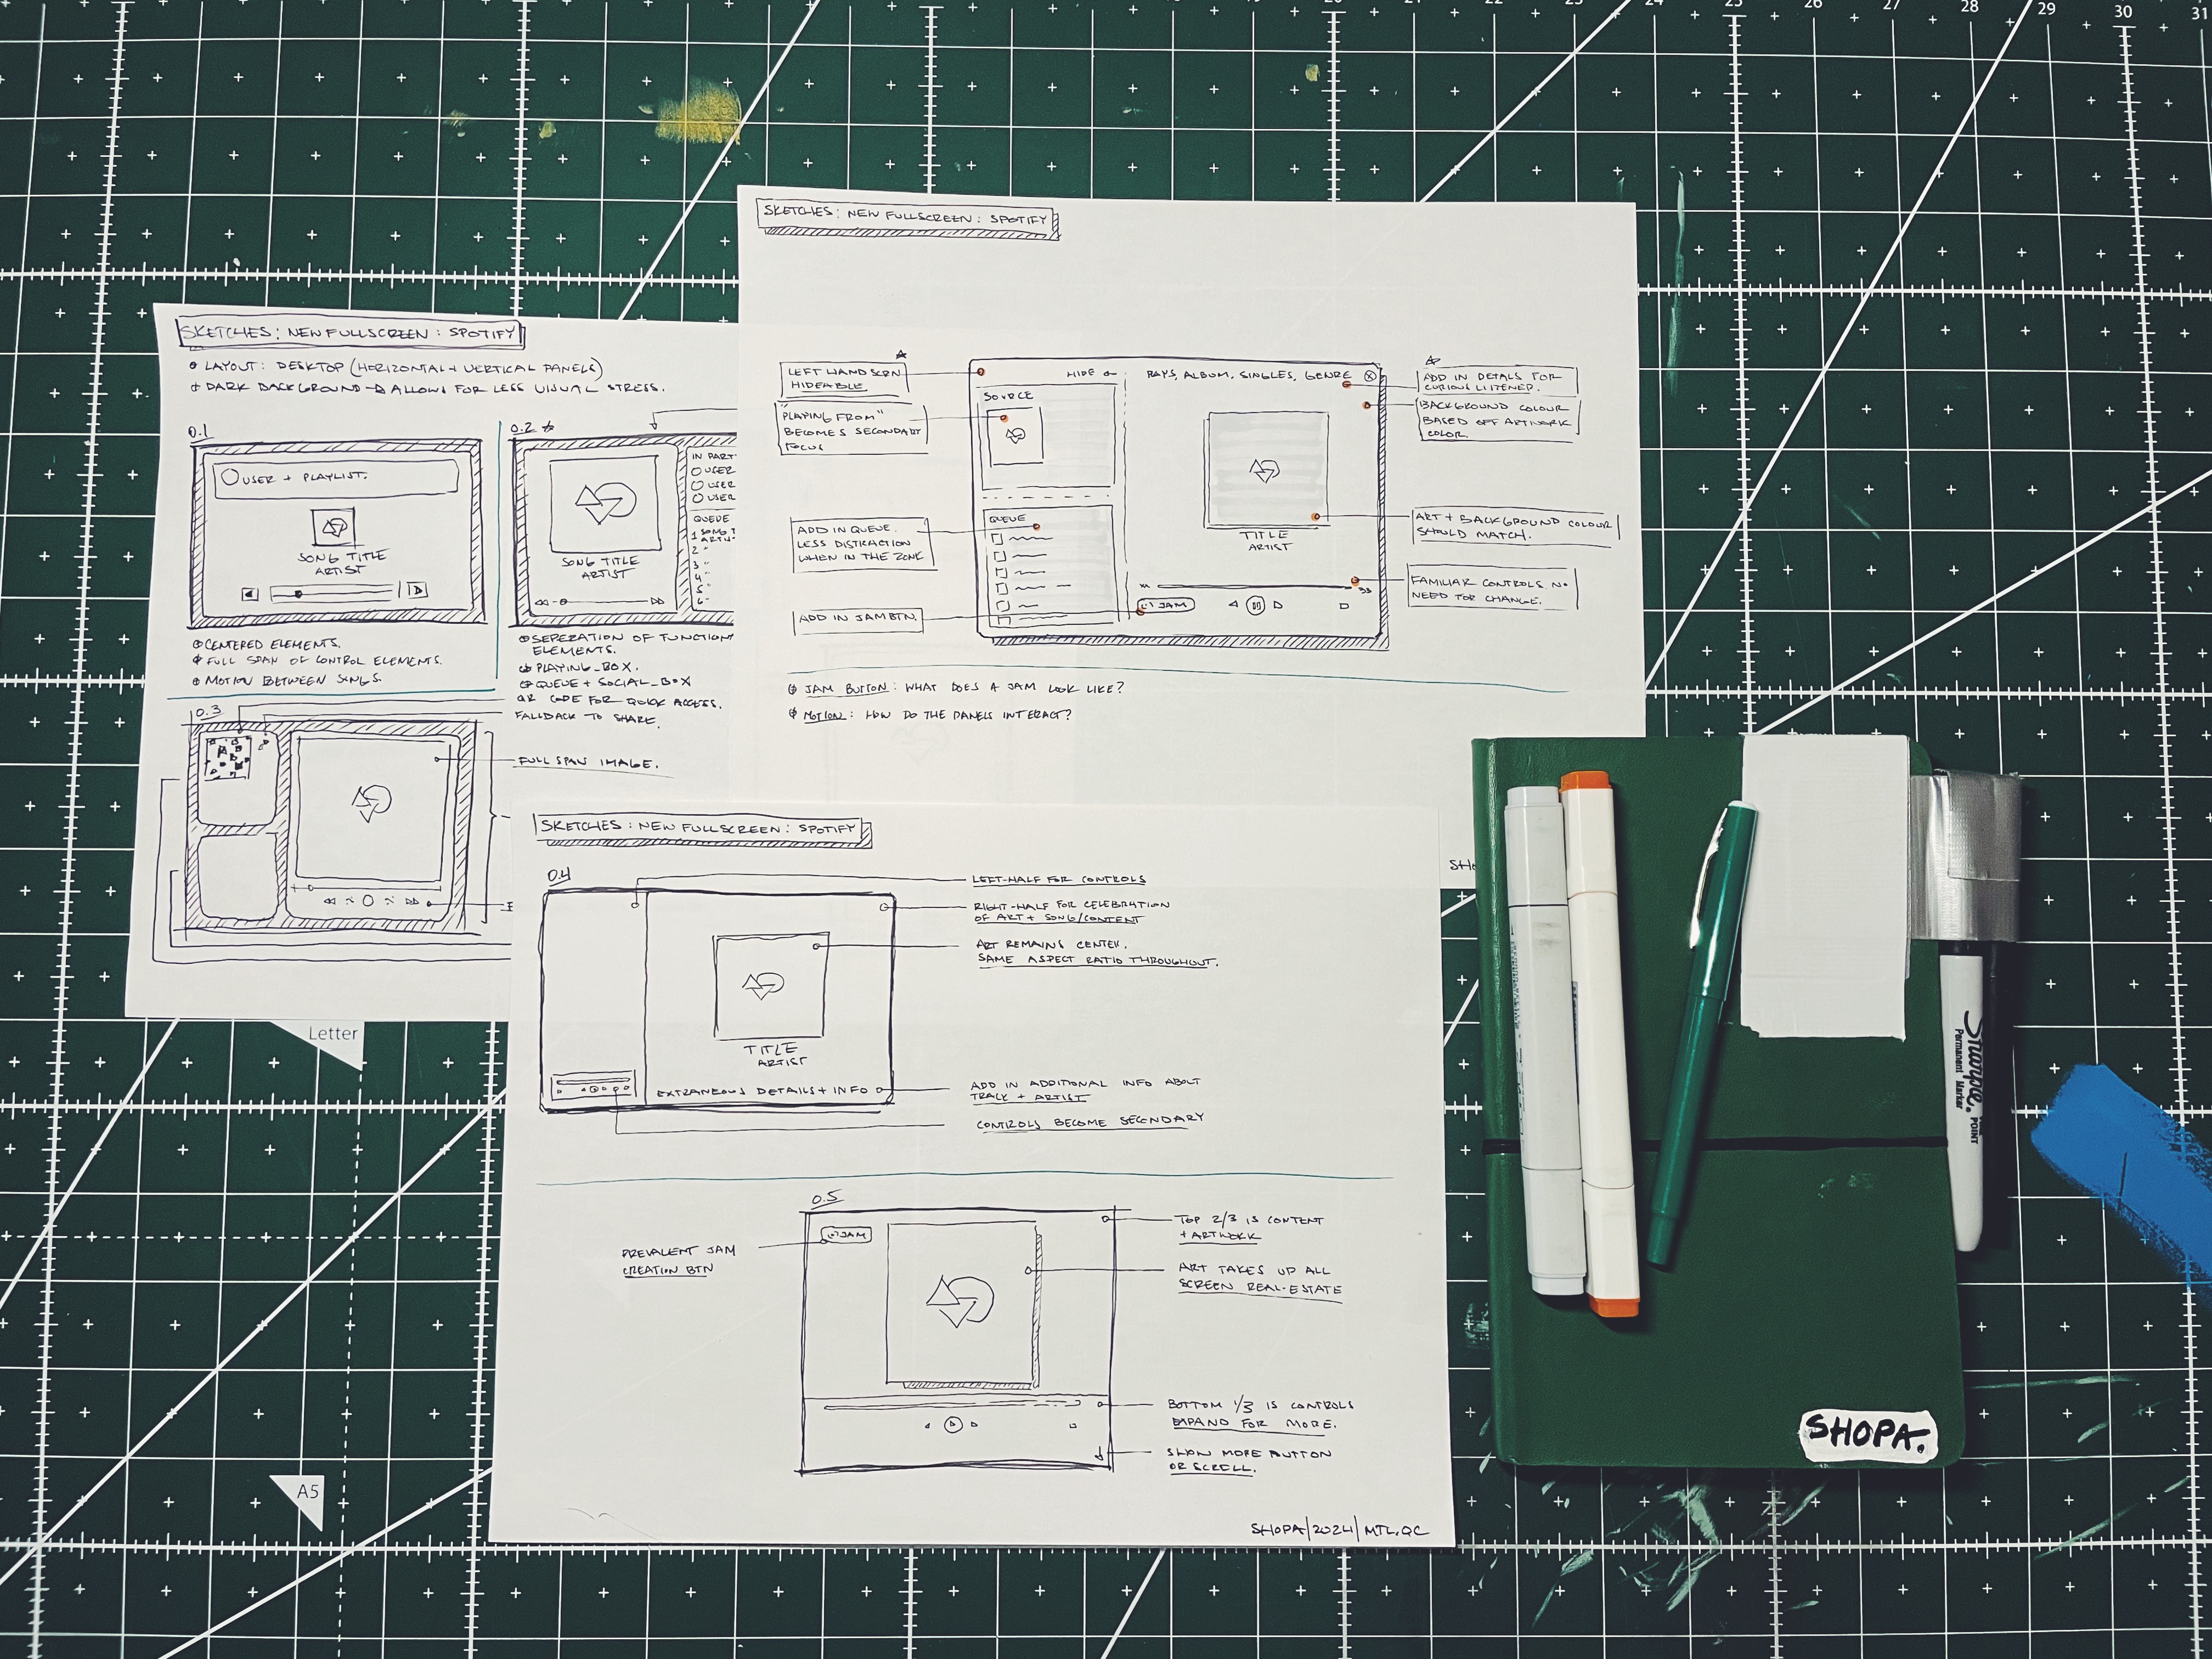 20
21
22
23
24
25
26
27
28
29
30
31
SKETCHES: NEW FULLSCREEN: SPOTIFY
LAYOUT: DESKTOP (HORIZONTAL + VERTICAL PANELS)
DARK BACKGROUND → ALLOWS FOR LESS VISUAL STRESS.
0.1
USER + PLAYLIST.
SONG TITLE
ARTIST
CENTERED ELEMENTS.
FULL SPAN OF CONTROL ELEMENTS.
MOTION BETWEEN SONGS.
0.2
SONG TITLE
ARTIST
IN PART
USER
USER
USER
QUEUE
1 SONG T
2 "
3 "
4 "
5 "
6 "
SEPERATION OF FUNCTION
ELEMENTS.
PLAYING_BOX.
QUEUE + SOCIAL_BOX
QR CODE FOR QUICK ACCESS.
FALLBACK TO SHARE.
0.3
FULL SPAN IMAGE.
SKETCHES: NEW FULLSCREEN: SPOTIFY
LEFT HAND SCRN
HIDEABLE.
"PLAYING FROM"
BECOMES SECONDARY
FOCUS
ADD IN QUEUE.
LESS DISTRACTION
WHEN IN THE ZONE
ADD IN JAM BTN.
HIDE
SOURCE
QUEUE
BAYS, ALBUM, SINGLES, GENRE
TITLE
ARTIST
JAM
ADD IN DETAILS FOR
CURIOUS LISTENER.
BACKGROUND COLOUR
BASED OFF ARTWORK
COLOR.
ART + BACKGROUND COLOUR
SHOULD MATCH.
FAMILIAR CONTROLS NO
NEED FOR CHANGE.
JAM BUTTON: WHAT DOES A JAM LOOK LIKE?
MOTION: HOW DO THE PANELS INTERACT?
SHO
SKETCHES: NEW FULLSCREEN: SPOTIFY
0.4
LEFT-HALF FOR CONTROLS
RIGHT-HALF FOR CELEBRATION
OF ART + SONG/CONTENT
ART REMAINS CENTER.
SAME ASPECT RATIO THROUGHOUT.
TITLE
ARTIST
EXTRANEOUS DETAILS + INFO
ADD IN ADDITIONAL INFO ABOUT
TRACK + ARTIST
CONTROLS BECOME SECONDARY
0.5
JAM
PREVALENT JAM
CREATION BTN
TOP 2/3 IS CONTENT
+ ARTWORK
ART TAKES UP ALL
SCREEN REAL-ESTATE
BOTTOM 1/3 IS CONTROLS
EXPAND FOR MORE.
SHOW MORE BUTTON
OR SCROLL.
SHOPA/2024/MTL.QC
Letter
A5
Sharpie.
Permanent Marker
POINT
SHOPA.